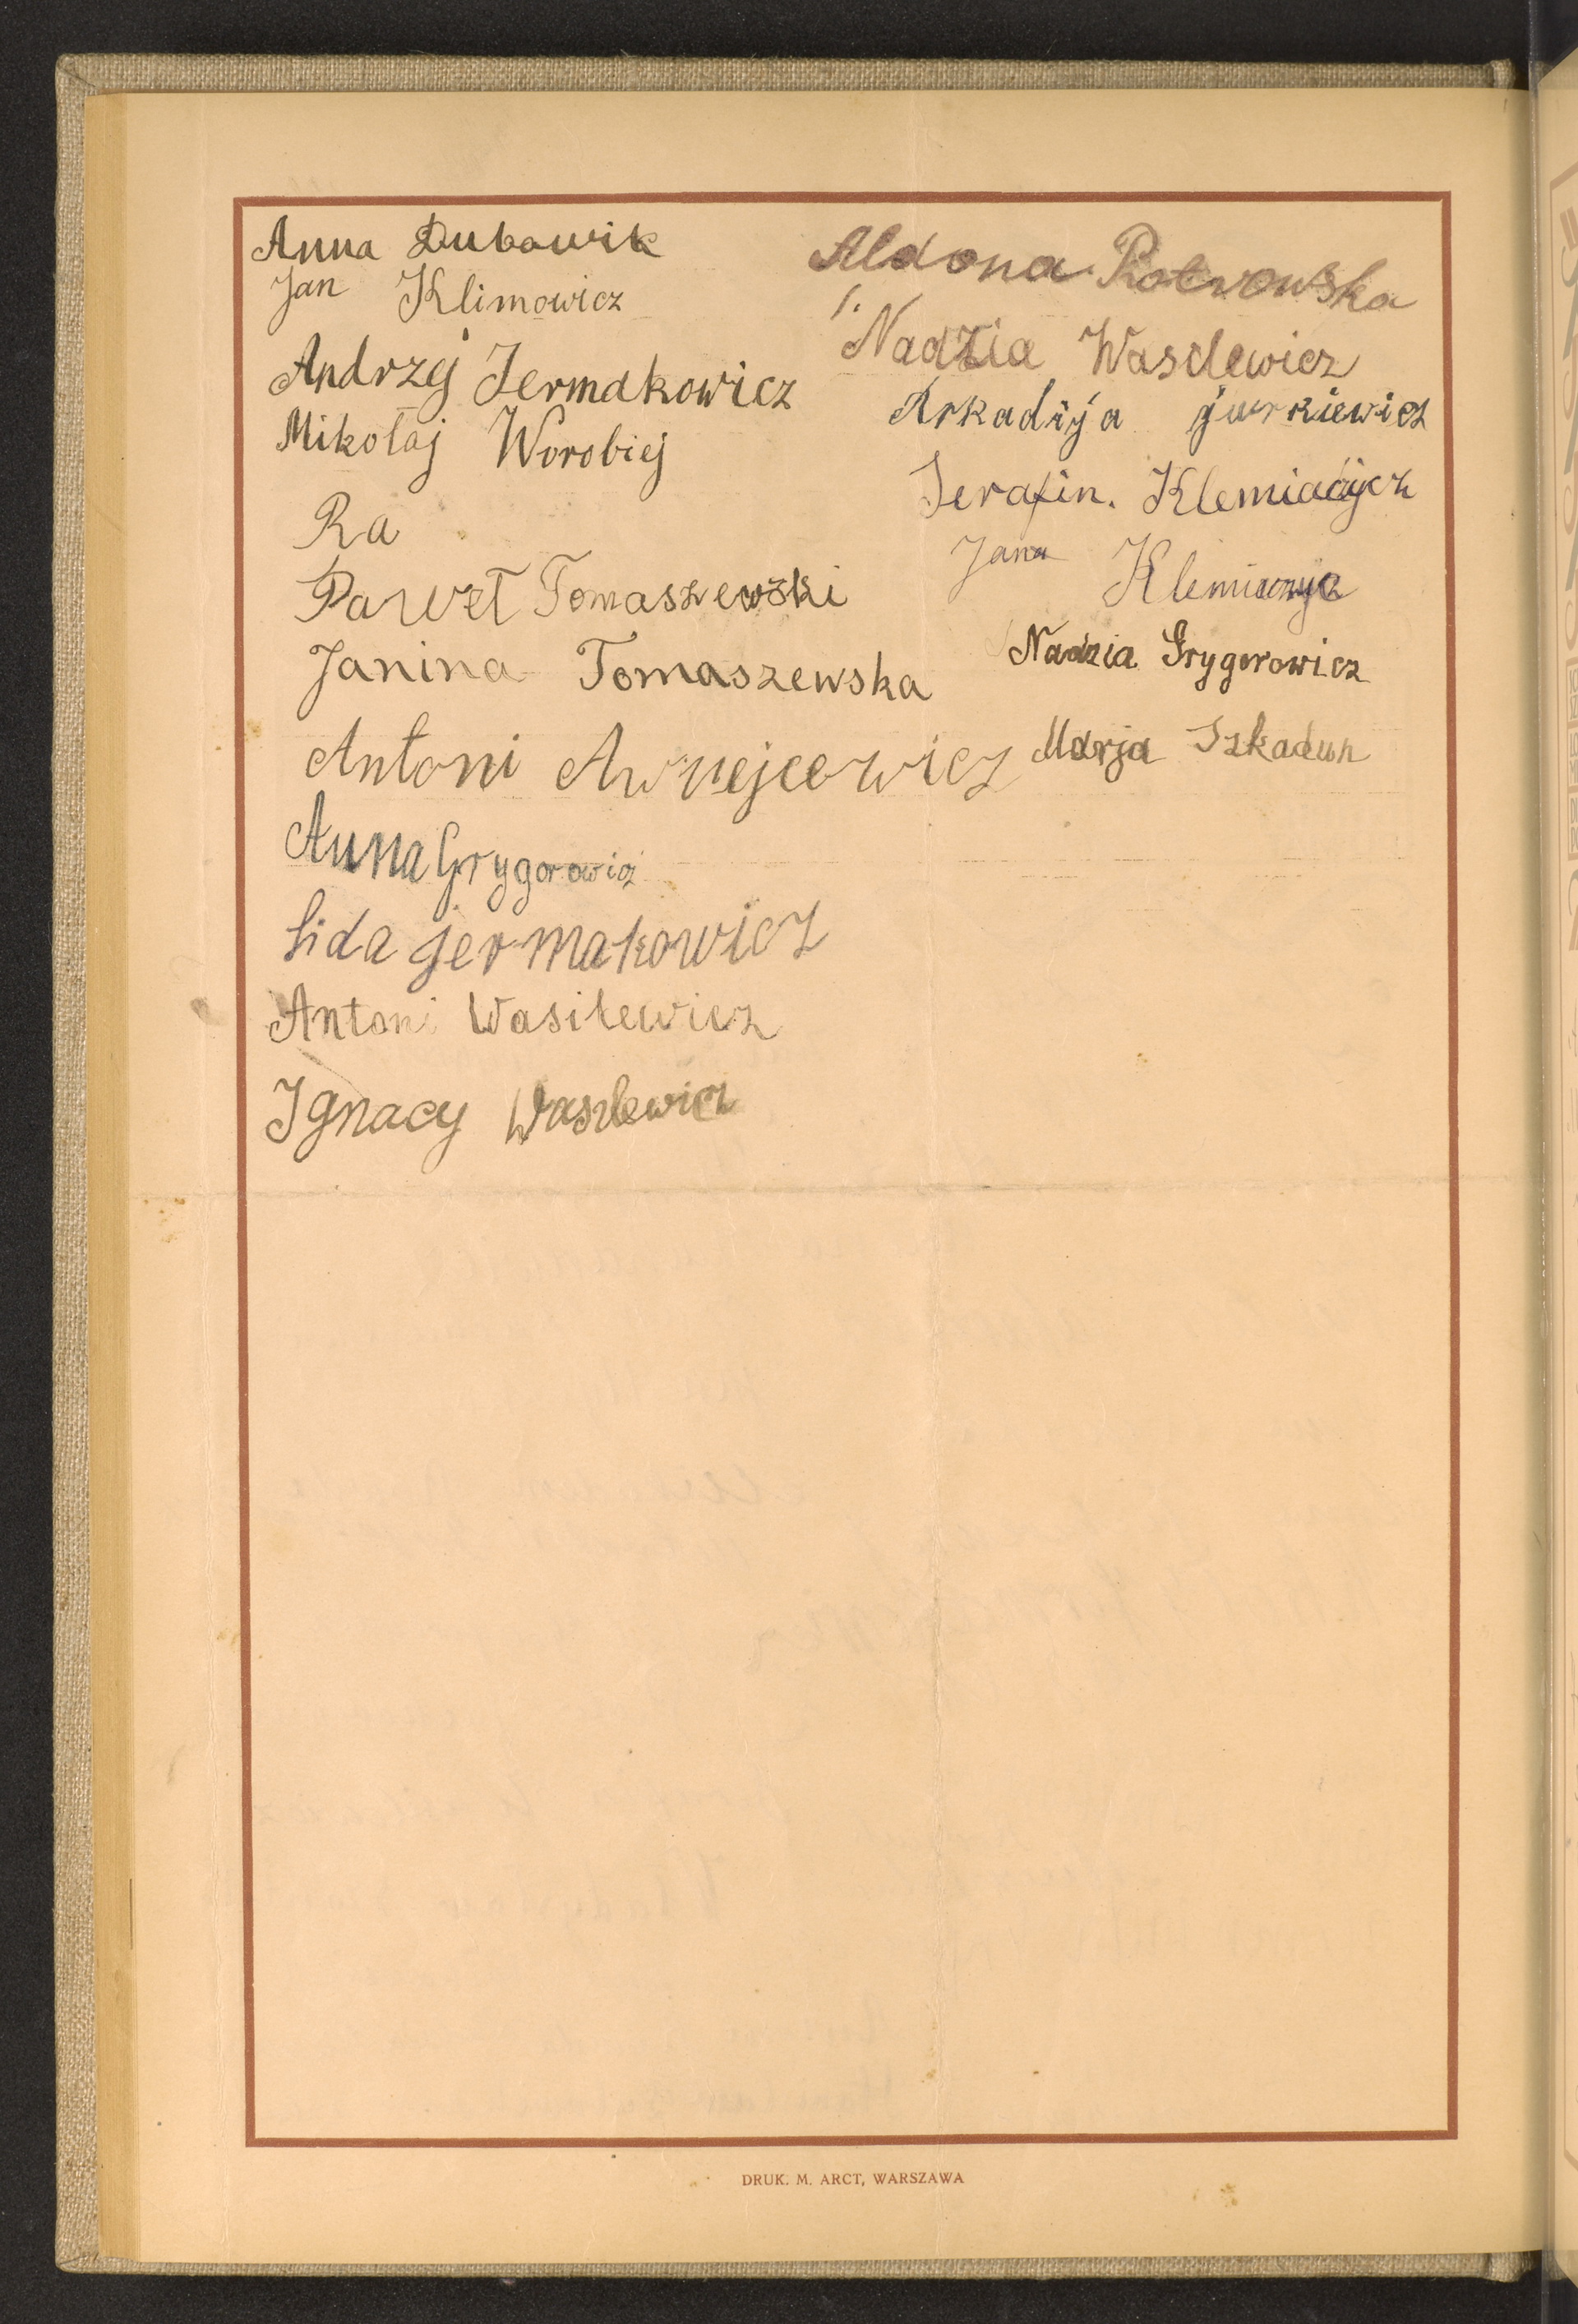 Anna Dubowik
Jan Klimowicz
Andrzej Jermakowicz
Mikołaj Worobiej
Ra
Paweł Tomaszewski
Janina Tomaszewska
Antoni Awniejcowicz
Anna Grygorowicz
Lida Jermakowicz
Antoni Wasilewicz
Ignacy Wasilewicz
Aldona Piotrowska
Nadzia Wasilewicz
Arkadija Jurkiewicz
Serafin. Klemiaczycz
Jana
Nadzia Grygorowicz
Marja Szkadun
DRUK. M. ARCT, WARSZAWA